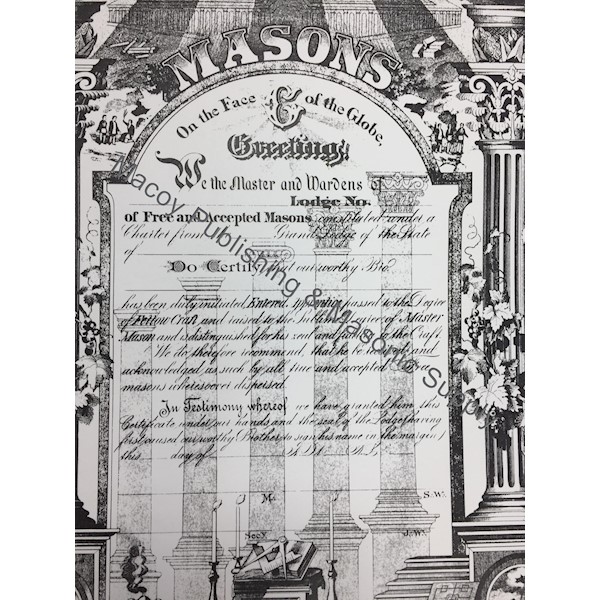 MASONS
On the Face & of the Globe,
Greeting:
We the Master and Wardens of
Lodge No.
of Free and Accepted Masons constituted under a
Charter from Grand Lodge of the State
of
Do Certify that our worthy Bro.
has been duly initiated Entered Apprentice passed to the Degree
of Fellow Craft and raised to the Sublime Degree of Master
Mason and is distinguished for his zeal and to the Craft.
We do therefore recommend, that he be received and
acknowledged as such by all true and accepted Free
masons wheresoever dispersed.
In Testimony whereof we have granted him this
Certificate under our hands and the seal of the Lodge (having
first caused our worthy Brother to sign his name in the margin)
this day of A.D. A.L.
M. S.W.
Secy. J.W.
Macoy Publishing & Masonic Supply